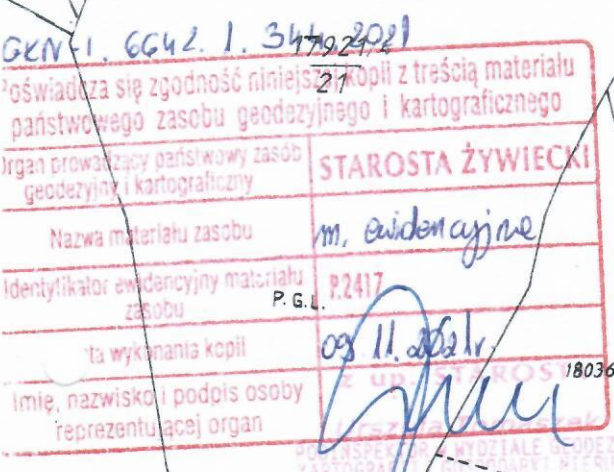 GKN-I. 6642. 1. 344. 2021
17921/2
21
Poświadcza się zgodność niniejszej kopii z treścią materiału
państwowego zasobu geodezyjnego i kartograficznego
Organ prowadzący państwowy zasób
geodezyjny i kartograficzny
STAROSTA ŻYWIECKI
Nazwa materiału zasobu
m. ewidencyjne
Identyfikator ewidencyjny materiału
zasobu
P.2417
P.G.L.
ta wykonania kopii
09. 11. 2021r.
Imię, nazwisko i podpis osoby
reprezentującej organ
z up. STAROSTY
18036
INSPEKTOR WYDZIALE GEODEZ